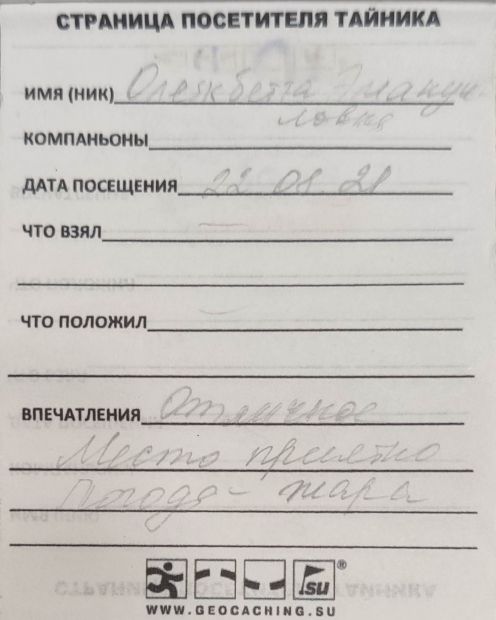 СТРАНИЦА ПОСЕТИТЕЛЯ ТАЙНИКА
ИМЯ (НИК) Олежкбетта Эмануи
ловна
КОМПАНЬОНЫ
ДАТА ПОСЕЩЕНИЯ 22 08 21
ЧТО ВЗЯЛ
ЧТО ПОЛОЖИЛ
ВПЕЧАТЛЕНИЯ Отличное
Место приятно
Погода - жара
.su®
WWW.GEOCACHING.SU